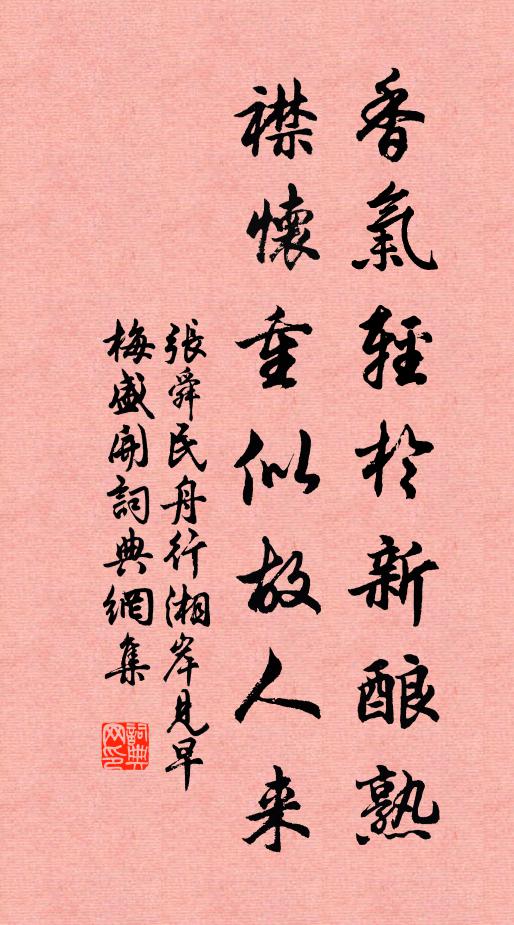 香氣輕於新酿熟
襟懷重似故人来
張舜民舟行湘岸見早
梅盛開詞典網集
詞典网印